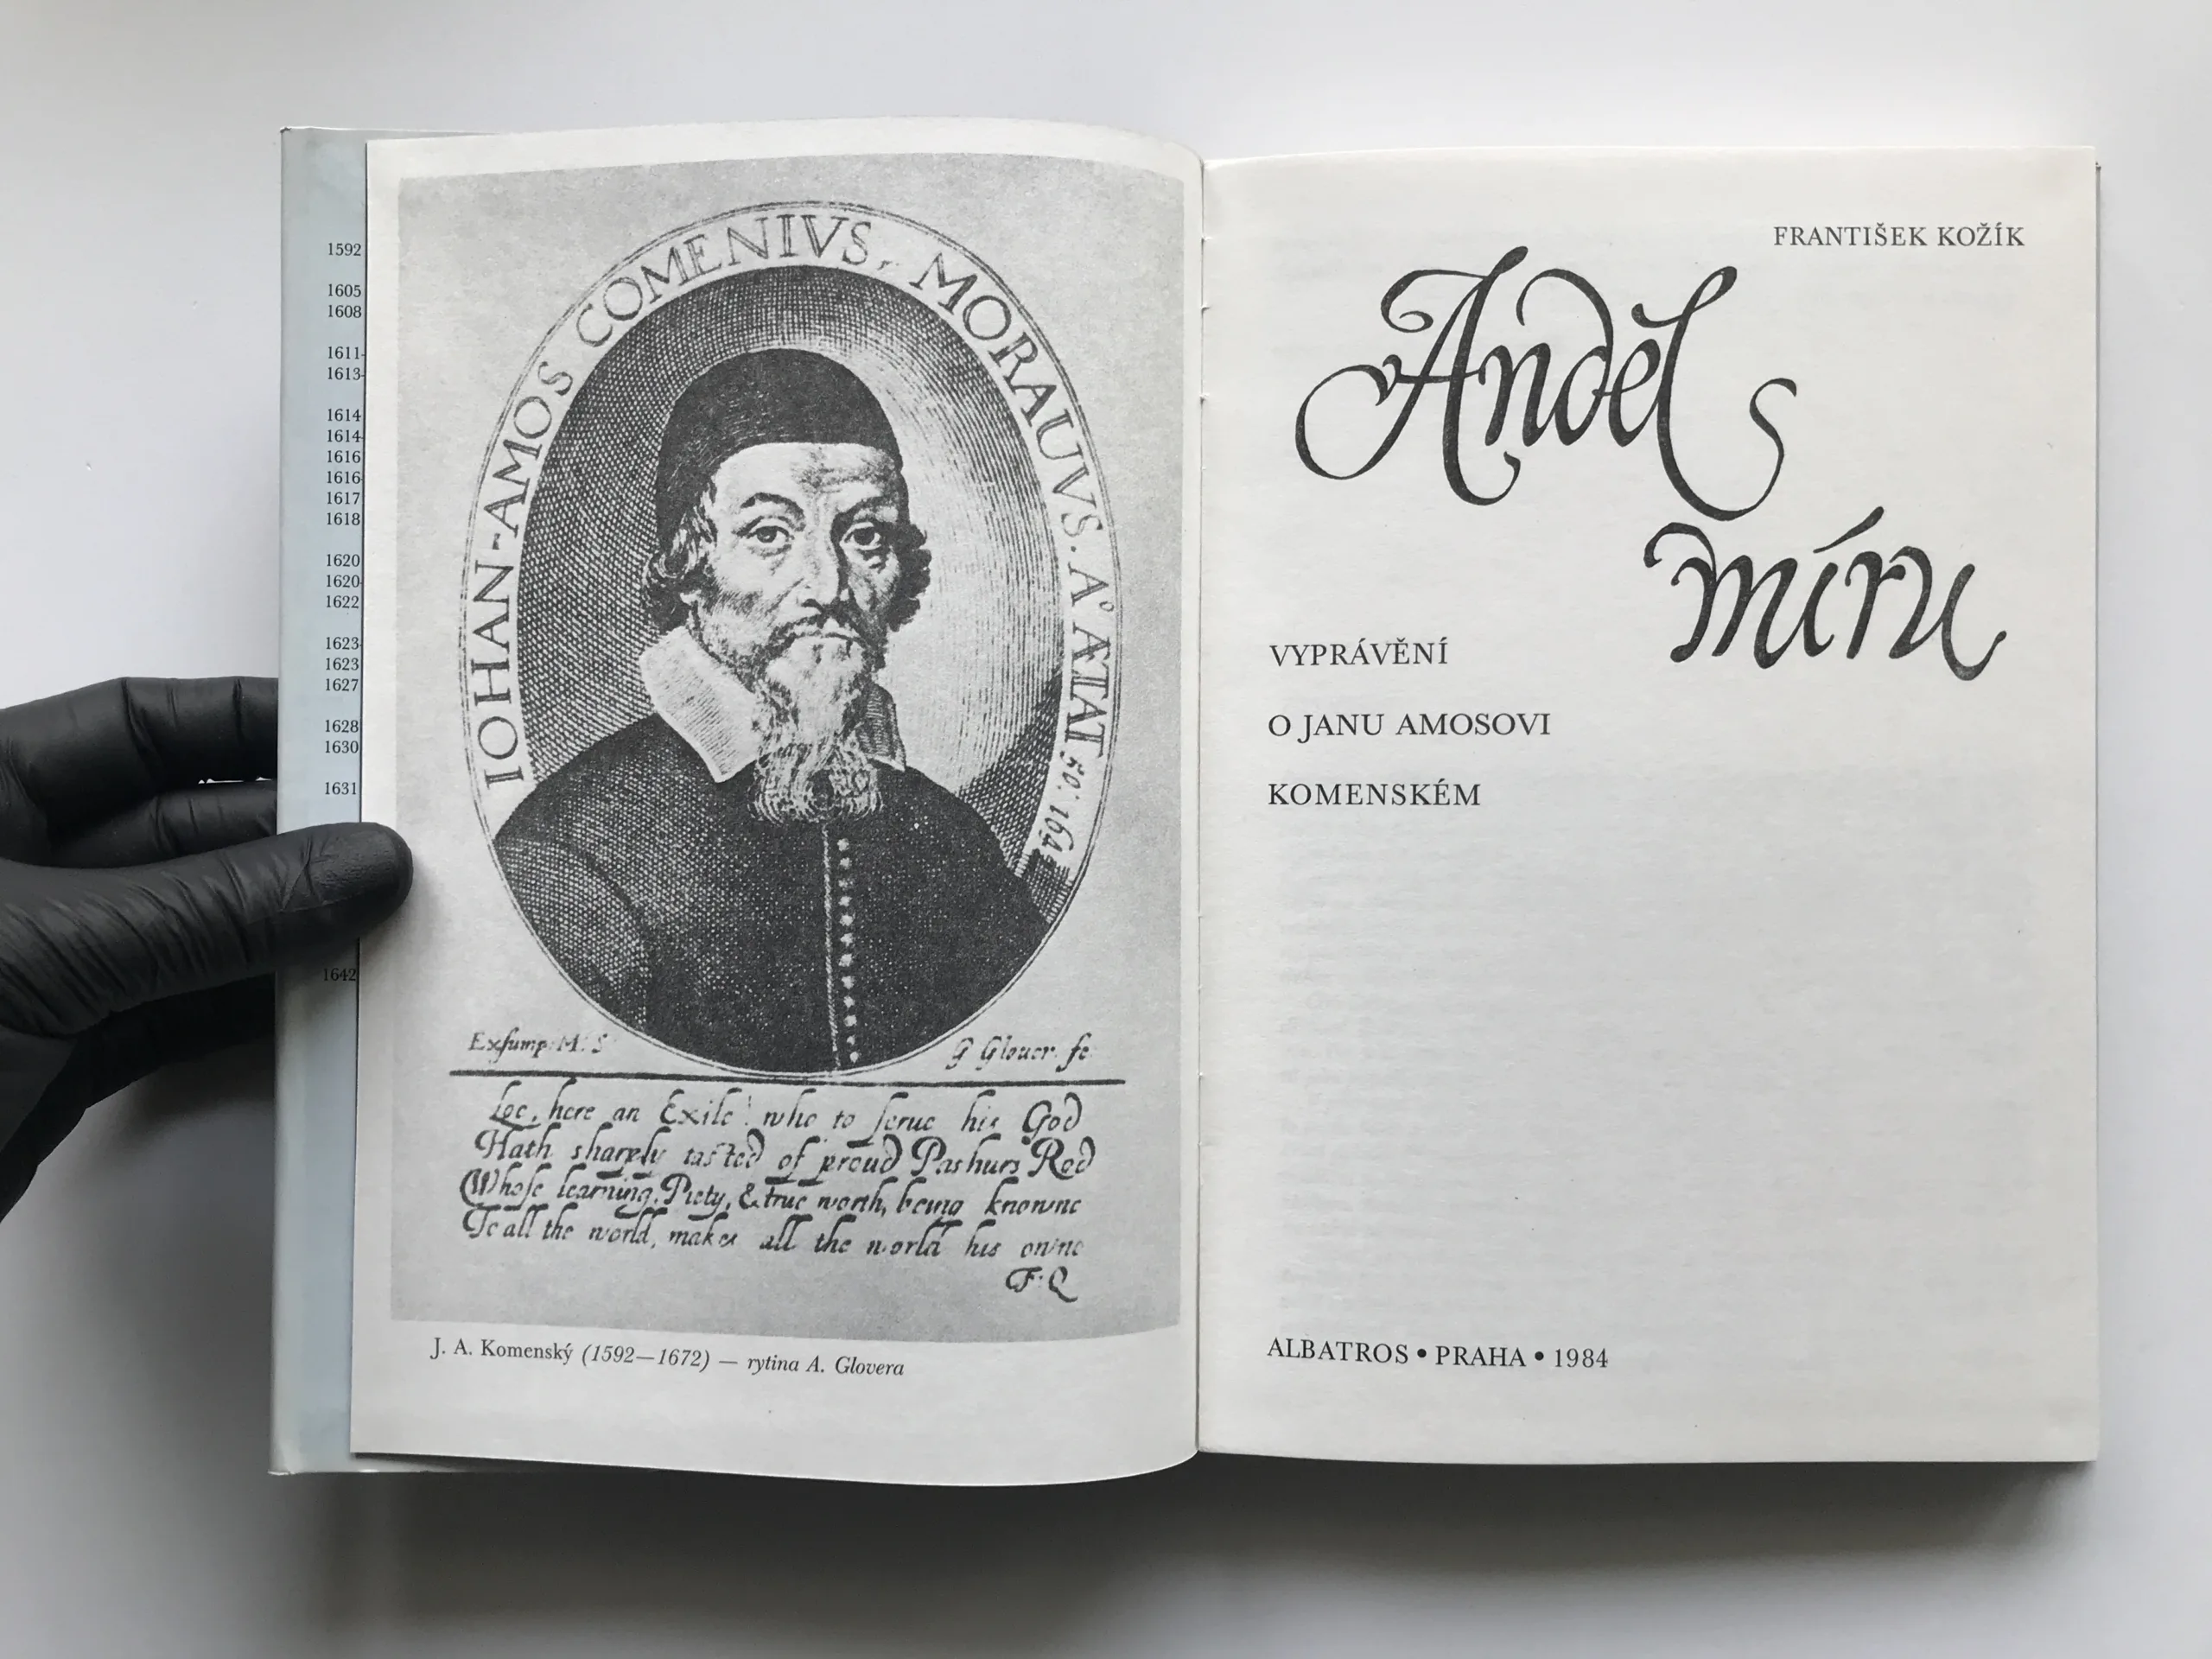 1592
1605
1608
1611
1613
1614
1614
1616
1616
1617
1618
1620
1620
1622
1623
1623
1627
1628
1630
1631
1642
IOHAN-AMOS COMENIVS, MORAUUS. A° ÆTAT 50: 164
Exsump: M: S
G Glouer. fe
Loe, here an Exile! who to serue his God
Hath sharply tasted of proud Pashurs Rod
Whose learning, Piety, & true worth, being knowne
To all the world, makes all the world his owne
F: Q
J. A. Komenský (1592—1672) — rytina A. Glovera
FRANTIŠEK KOŽÍK
Anděl
míru
VYPRÁVĚNÍ
O JANU AMOSOVI
KOMENSKÉM
ALBATROS • PRAHA • 1984